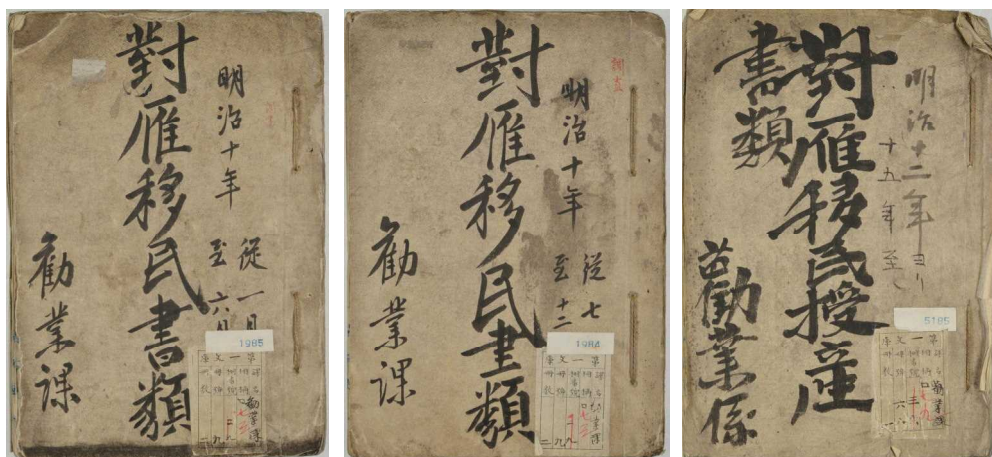 明治十年
從一月
至六月
對雁移民書類
勸業課
1985
明治十年
從七
至十二
對雁移民書類
勸業課
1984
明治十二年ヨリ
十五年至ル
對雁移民授産
書類
勸業係
5185